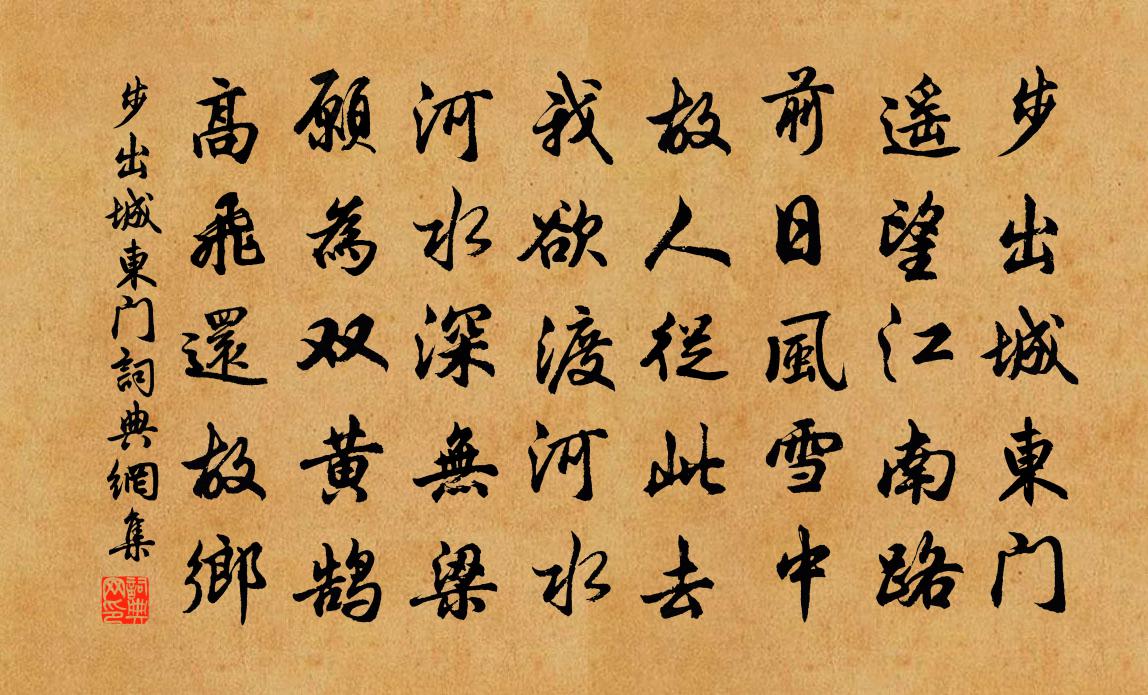 步出城東门
遥望江南路
前日風雪中
故人從此去
我欲渡河水
河水深無梁
願為双黄鹄
高飛還故鄉
步出城東门詞典網集
詞典网印